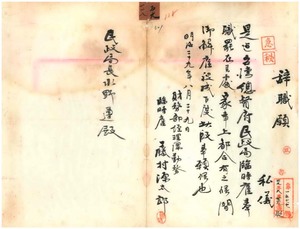 辞職願
私儀
是迄台湾總督府民政局臨時雇奉
職罷在候處家事上都合有之候間
御解雇被成下度此段奉願候也
明治二十九年八月二十九日
財務部経理課勤務
臨時雇
藤村源太郎
民政局長水野遵殿